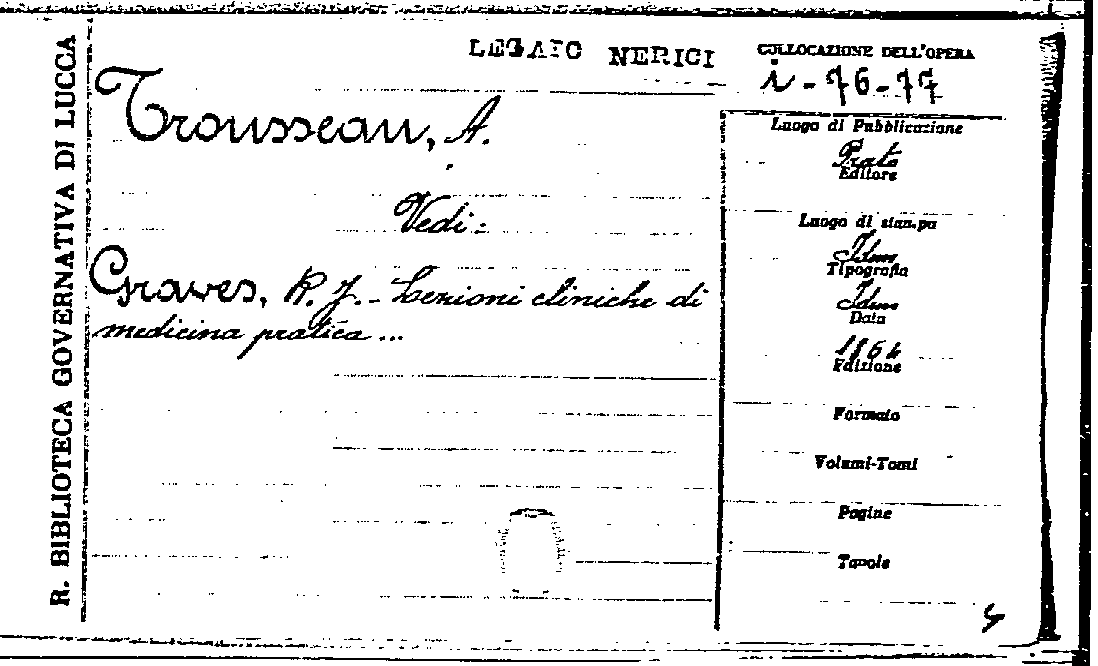 R. BIBLIOTECA GOVERNATIVA DI LUCCA
LEGATO NERICI
COLLOCAZIONE DELL'OPERA
i-76-77
Trousseau, A.
Vedi:
Graves, R. J. - Lezioni cliniche di
medicina pratica...
Luogo di Pubblicazione
Prato
Editore
Luogo di stampa
Idem
Tipografia
Idem
Data
1864
Edizione
Formato
Volumi-Tomi
Pagine
Tavole